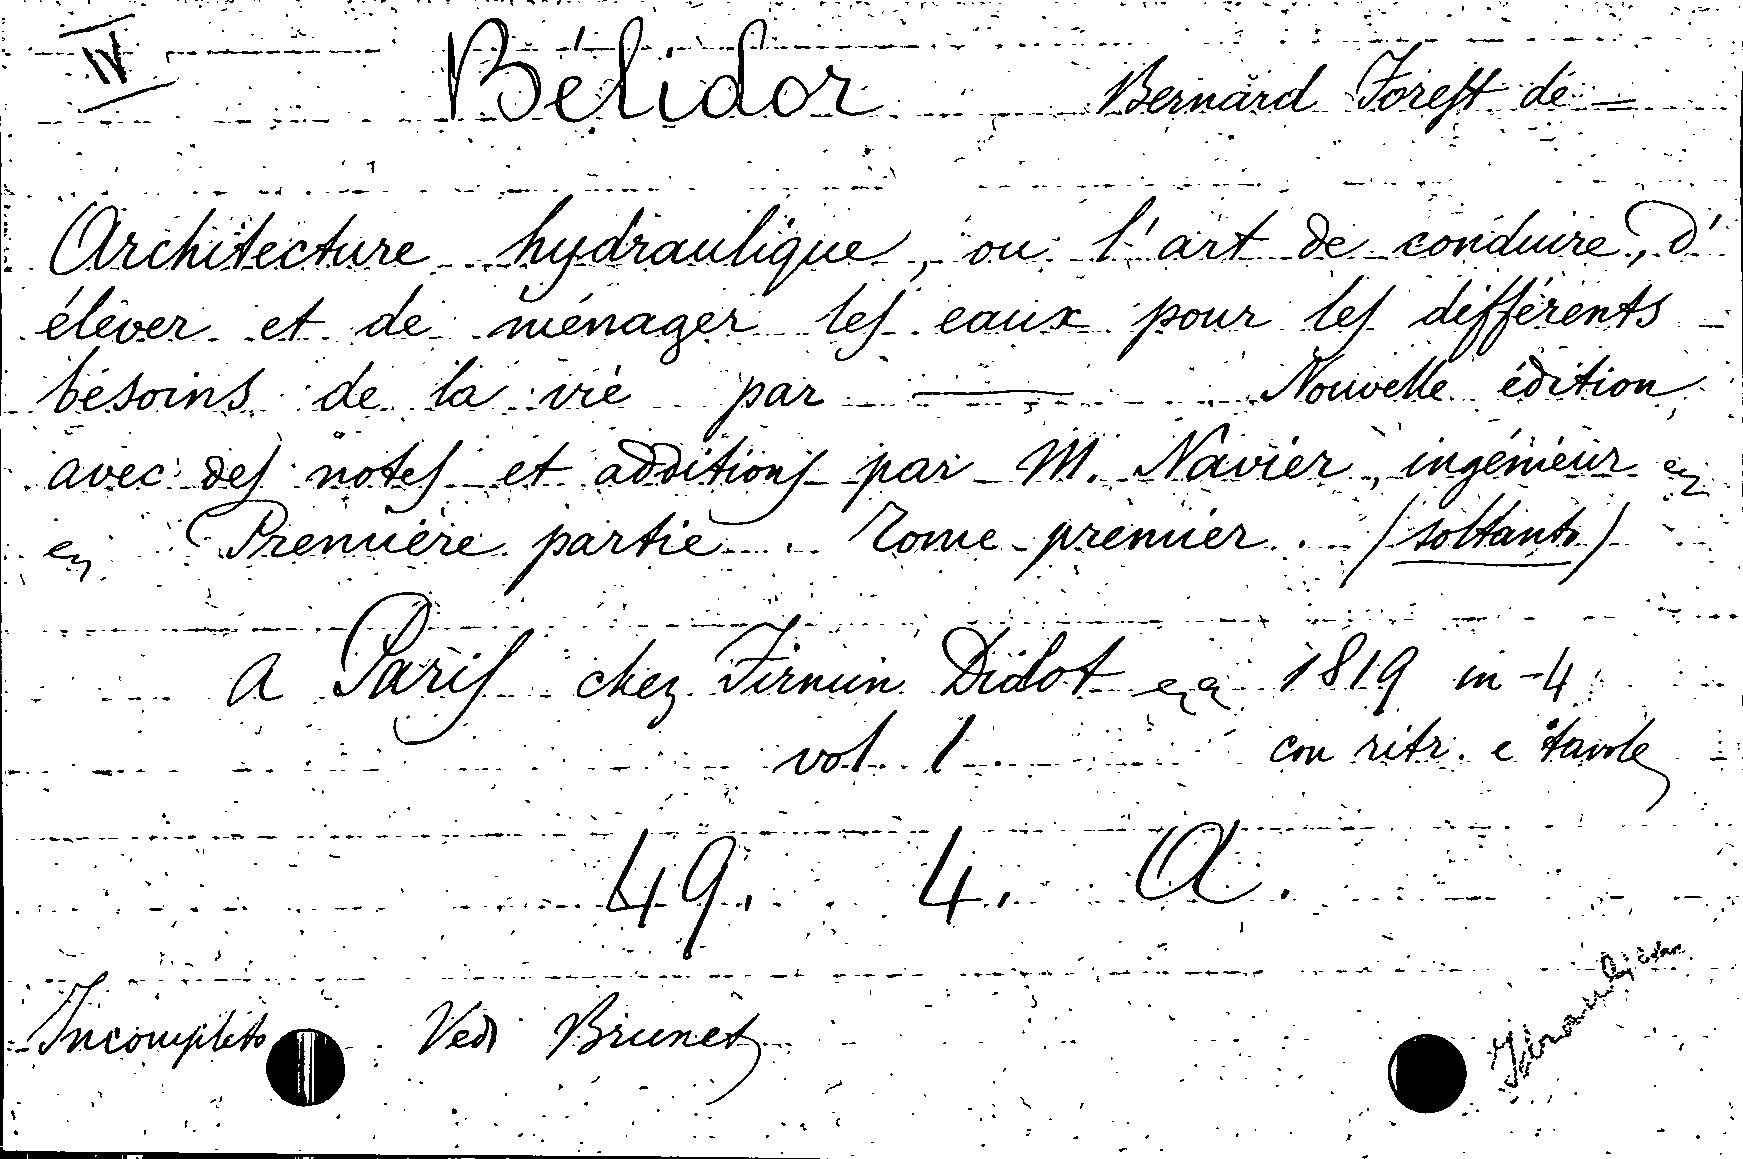 IV
Bélidor Bernard Forest de —
Architecture hydraulique, ou l'art de conduire, d'
élever et de ménager les eaux pour les différents
besoins de la vie par —— Nouvelle édition
avec des notes et additions par M. Navier, ingénieur &
& Première partie. Tome premier. (soltanto)
A Paris chez Firmin Didot 1819 in-4
vol. 1 con ritr. e tavole
49. 4. A.
Incompleto Vedi Brunet